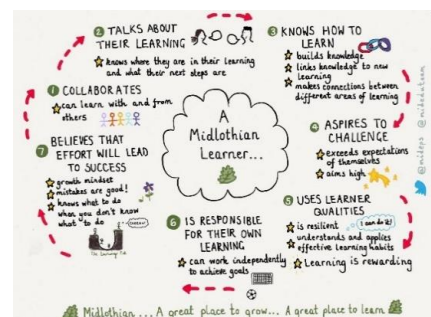 A
Midlothian
Learner...
1 COLLABORATES
can learn with and from
others
2 TALKS ABOUT
THEIR LEARNING
knows where they are in their learning
and what their next steps are
3 KNOWS HOW TO
LEARN
builds knowledge
links knowledge to new
learning
makes connections between
different areas of learning
4 ASPIRES TO
CHALLENGE
exceeds expectations
of themselves
aims high
5 USES LEARNER
QUALITIES
is resilient
I can do it!
understands and applies
effective learning habits
Learning is rewarding
6 IS RESPONSIBLE
FOR THEIR OWN
LEARNING
can work independently
to achieve goals
7 BELIEVES THAT
EFFORT WILL LEAD
TO SUCCESS
growth mindset
mistakes are good!
knows what to do
when you don't know
what to do
The Learning Pit
Midlothian... A great place to grow... A great place to learn
@midlps @mideduteam